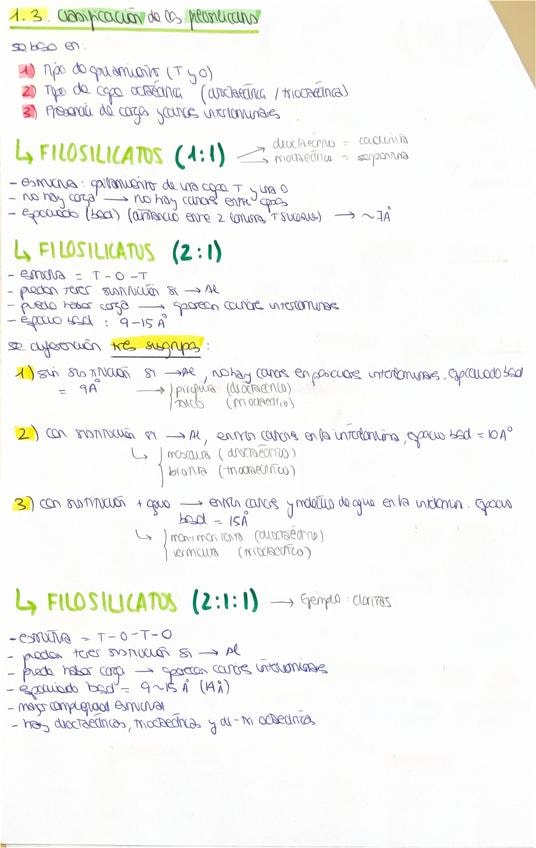 1.3. Clasificación de los filosilicatos
se basa en:
1) Tipo de apilamiento (T y O)
2) Tipo de capa octaédrica (dioctaédrica / trioctaédrica)
3) Presencia de carga y cationes interlaminares
↳ FILOSILICATOS (1:1)
dioctaédrico = caolinita
trioctaédrico = serpentina
- estructura: apilamiento de una capa T y una O
- no hay carga → no hay cationes entre capas
- espaciado (basal) (distancia entre 2 láminas T sucesivas) → ~7Å
↳ FILOSILICATOS (2:1)
- estructura = T-O-T
- pueden tener sustitución Si → Al
- puede haber carga → aparecen cationes interlaminares
- espacio basal: 9-15 Å
se diferencian tres subgrupos:
1) sin sustitución Si → Al, no hay cationes en posiciones interlaminares. espaciado basal
= 9Å → pirofilita (dioctaédrico)
talco (trioctaédrico)
2) con sustitución Si → Al, entran cationes en la interlámina, espacio basal = 10Å
↳ moscovita (dioctaédrico)
biotita (trioctaédrico)
3) con sustitución + agua → entran cationes y moléculas de agua en la interlámin. Espacio
basal = 15Å
↳ montmorillonita (dioctaédrico)
vermiculita (trioctaédrico)
↳ FILOSILICATOS (2:1:1) → Ejemplo: cloritas
- estructura = T-O-T-O
- pueden tener sustitución Si → Al
- puede haber carga → aparecen cationes interlaminares
- espaciado basal = 9~15 Å (14 Å)
- mayor complejidad estructural
- hay dioctaédricas, trioctaédricas y di-tri octaédricas